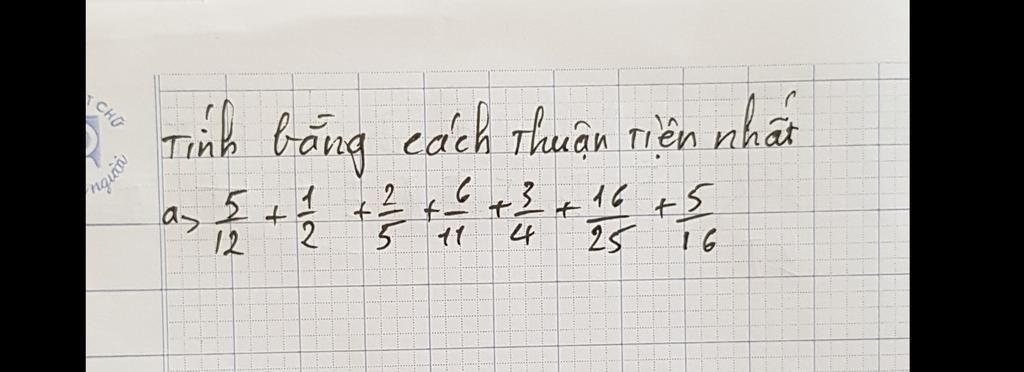 T CHỮ
người
Tính bằng cách thuận tiện nhất
a> 5/12 + 1/2 + 2/5 + 6/11 + 3/4 + 16/25 + 5/16